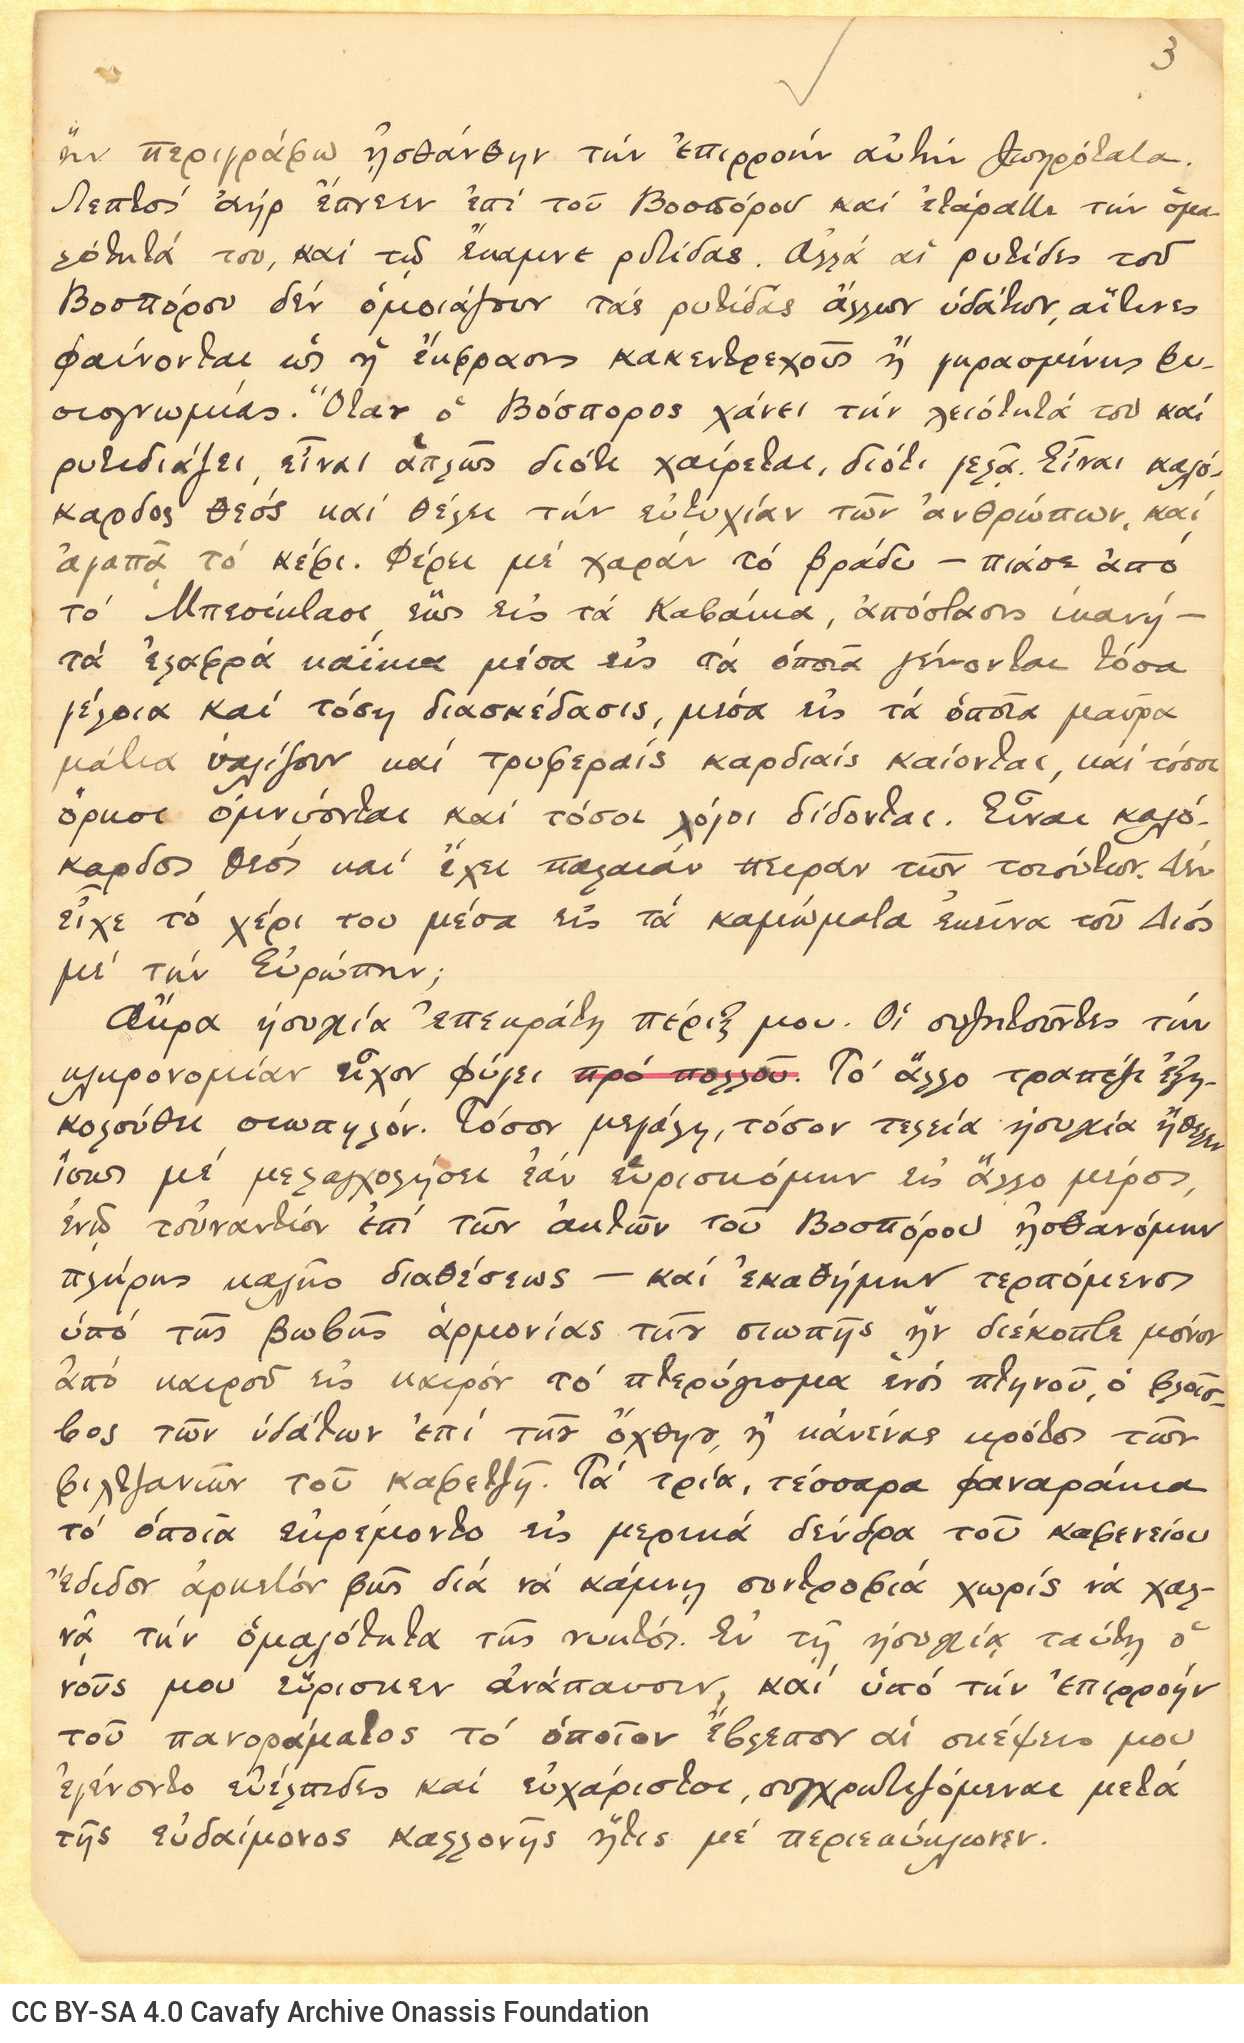 3
ἣν περιγράφω ᾐσθάνθην τὴν ἐπιρροὴν αὐτὴν ζωηρότατα.
Λεπτὸς ἀὴρ ἔπνεεν ἐπὶ τοῦ Βοσπόρου καὶ ἐτάραττε τὴν ὁμα-
λότητά του, καὶ τῷ ἔκαμνε ρυτίδας. Ἀλλὰ αἱ ρυτίδες τοῦ
Βοσπόρου δὲν ὁμοιάζουν τὰς ρυτίδας ἄλλων ὑδάτων, αἵτινες
φαίνονται ὡς ἡ ἔκφρασις κακεντρεχοῦς ἢ γηρασμένης φυ-
σιογνωμίας. Ὅταν ὁ Βόσπορος χάνει τὴν λειότητά του καὶ
ρυτιδιάζει, εἶναι ἁπλῶς διότι χαίρεται, διότι γελᾷ. Εἶναι καλό-
καρδος θεὸς καὶ θέλει τὴν εὐτυχίαν τῶν ἀνθρώπων, καὶ
ἀγαπᾷ τὸ κέφι. Φέρει μὲ χαρὰν τὸ βράδυ — πιάσε ἀπὸ
τὸ Μπεσίκτασι ἕως εἰς τὰ Καβάκια, ἀπόστασις ἱκανὴ —
τὰ ἐλαφρὰ καΐκια μέσα εἰς τὰ ὁποῖα γίνονται τόσα
γέλοια καὶ τόση διασκέδασις, μέσα εἰς τὰ ὁποῖα μαῦρα
μάτια ὑαλίζουν καὶ τρυφεραὶς καρδιαὶς καίονται, καὶ τόσοι
ὅρκοι ὀμνύονται καὶ τόσοι λόγοι δίδονται. Εἶναι καλό-
καρδος θεὸς καὶ ἔχει παλαιὰν πεῖραν τῶν τοιούτων. Δὲν
εἶχε τὸ χέρι του μέσα εἰς τὰ καμώματα ἐκεῖνα τοῦ Διὸς
μὲ τὴν Εὐρώπην;
Ἄκρα ἡσυχία ἐπεκράτη πέριξ μου. Οἱ συζητοῦντες τὴν
κληρονομίαν εἶχον φύγει πρὸ πολλοῦ. Τὸ ἄλλο τραπέζι ἐξη-
κολούθει σιωπηλόν. Τόσον μεγάλη, τόσον τελεία ἡσυχία ἤθελεν
ἴσως μὲ μελαγχολήσει ἐὰν εὑρισκόμην εἰς ἄλλο μέρος,
ἐνῷ τοὐναντίον ἐπὶ τῶν ἀκτῶν τοῦ Βοσπόρου ᾐσθανόμην
πλήρης καλῆς διαθέσεως — καὶ ἐκαθήμην τερπόμενος
ὑπὸ τῆς βωβῆς ἁρμονίας τῆς σιωπῆς ἣν διέκοπτε μόνον
ἀπὸ καιροῦ εἰς καιρὸν τὸ πτερύγισμα ἑνὸς πτηνοῦ, ὁ φλοῖσ-
βος τῶν ὑδάτων ἐπὶ τὴν ὄχθην, ἢ κανένας κρότος τῶν
φιλτζανιῶν τοῦ καφετζῆ. Τὰ τρία, τέσσαρα φαναράκια
τὰ ὁποῖα ἐκρέμοντο εἰς μερικὰ δένδρα τοῦ καφενείου
ἔδιδον ἀρκετὸν φῶς διὰ νὰ κάμνῃ συντροφιὰ χωρὶς νὰ χαλ-
νᾷ τὴν ὁμαλότητα τῆς νυκτός. Ἐν τῇ ἡσυχίᾳ ταύτῃ ὁ
νοῦς μου εὕρισκεν ἀνάπαυσιν, καὶ ὑπὸ τὴν ἐπιρροὴν
τοῦ πανοράματος τὸ ὁποῖον ἔβλεπον αἱ σκέψεις μου
ἐγένοντο εὐέλπιδες καὶ εὐχάριστοι, συγχρωτιζόμεναι μετὰ
τῆς εὐδαίμονος καλλονῆς ἥτις μὲ περιεκύκλωνεν.
CC BY-SA 4.0 Cavafy Archive Onassis Foundation